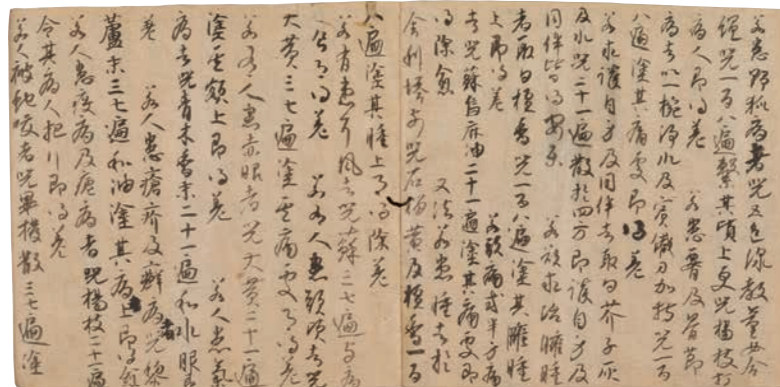 若患野狐病者咒五色線教童女合
繩咒一百八遍繫其項上更咒楊枝打
病人即得差 若患脊及骨節
病者以一椀淨水及賓鐵刀加持咒一百
八遍塗其痛處即得差
若求護自身及同伴者取白芥子灰
及水咒二十一遍散於四方即護自身及
同伴皆得安樂 若欲求治癰腫
者取白檀香咒一百八遍塗其癰腫
上即得差 若頭痛或半方痛
者咒蘇烏麻油二十一遍塗其痛處即
得除愈 又法若患腫者於
舍利塔前咒石榴黄及檀香一百
八遍塗其腫上即得除差
若有患牙風者咒蘇二七遍与病
人即得差 若有人患頭項者咒
大黄三七遍塗其痛處即得差
若有人患赤眼者咒大黄二十一遍
塗其額上即得差 若有人患氣
病者咒青木香末二十一遍和水服
差 若人患瘡疥及癬病咒藜
蘆末三七遍和油塗其病上即得愈
若人患瘦病及瘧病者咒楊枝二十一遍
令其病人把行即得差
若人被蛇咬者咒畢撥散三七遍塗